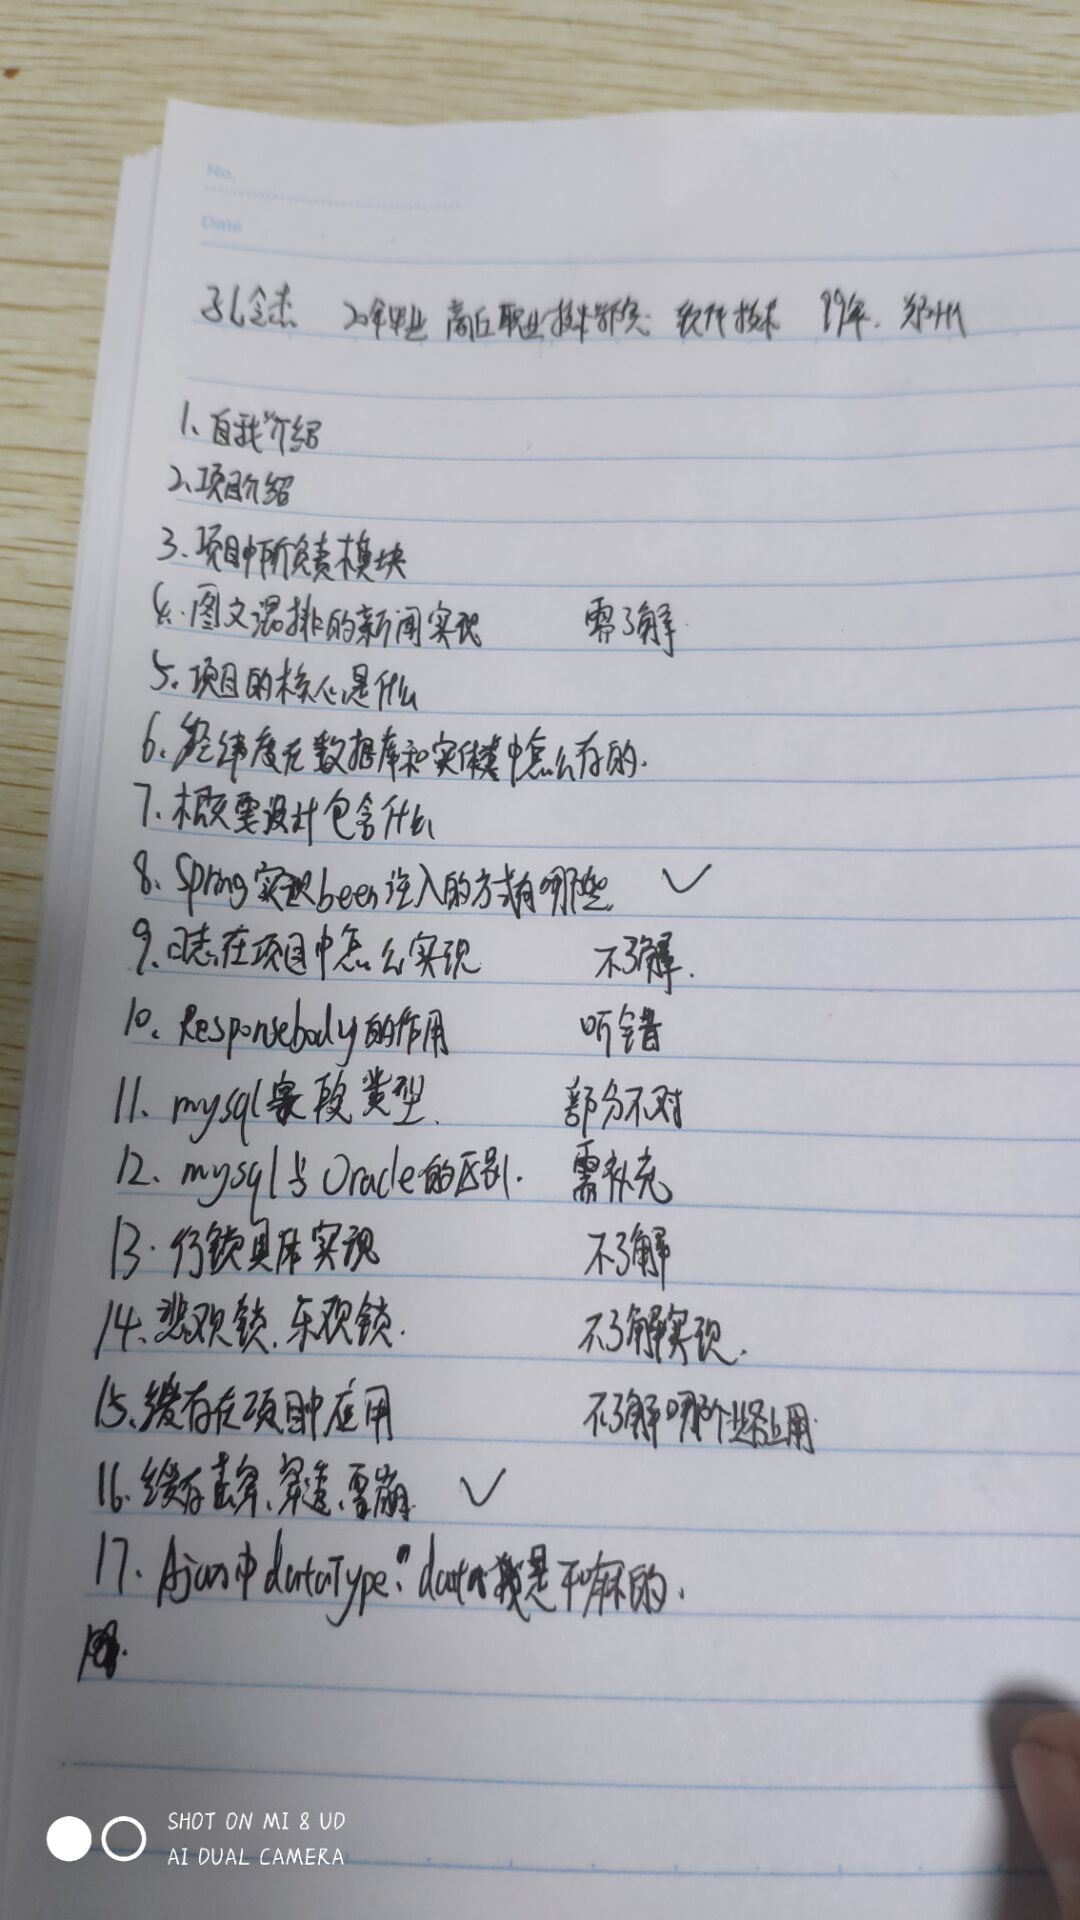 No.
Date
孔令杰 20年毕业 商丘职业技术学院 软件技术 99年. 郑州
1、自我介绍
2、项目介绍
3、项目中所负责模块
4、图文混排的新闻实现 需了解
5、项目的核心是什么
6、经纬度在数据库和实体类中怎么存的.
7、概要设计包含什么
8、Spring实现been注入的方式有哪些 ✓
9、日志在项目中怎么实现 不了解.
10、Responsebody的作用 听错
11、mysql字段类型. 部分不对
12、mysql与Oracle的区别. 需补充
13.行锁具体实现 不了解
14、悲观锁.乐观锁. 不了解实现.
15、缓存在项目中应用 不了解哪个业务上用.
16、缓存击穿、穿透、雪崩. ✓
17.Ajax中dataType: data 是干嘛的.
SHOT ON MI 8 UD
AI DUAL CAMERA